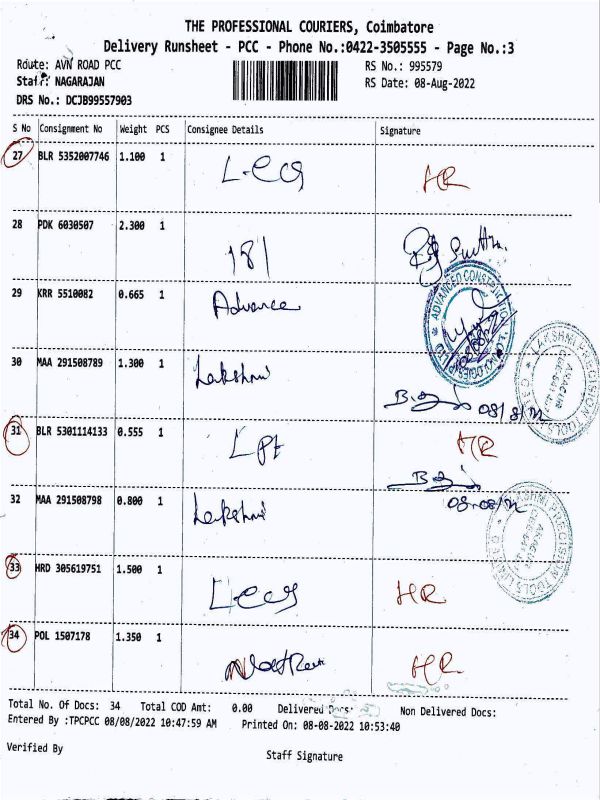 THE PROFESSIONAL COURIERS, Coimbatore
Delivery Runsheet - PCC - Phone No.:0422-3505555 - Page No.:3
Route: AVN ROAD PCC RS No.: 995579
Staff: NAGARAJAN RS Date: 08-Aug-2022
DRS No.: DCJB99557903
S No Consignment No Weight PCS Consignee Details Signature
27 BLR 5352007746 1.100 1 HR
28 PDK 6030507 2.300 1 181
29 KRR 5510082 0.665 1 Advance
30 MAA 291508789 1.300 1 Lakshmi 08/8/22
31 BLR 5301114133 0.555 1 LPT HR
32 MAA 291508798 0.800 1 Lakshmi 08-08/22
33 HRD 305619751 1.500 1 HR
34 POL 1507178 1.350 1 HR
LAKSHMI PRECISION TOOLS
LAKSHMI PRECISION TOOLS LIMITED
Total No. Of Docs: 34 Total COD Amt: 0.00 Delivered Docs: Non Delivered Docs:
Entered By :TPCPCC 08/08/2022 10:47:59 AM Printed On: 08-08-2022 10:53:40
Verified By Staff Signature